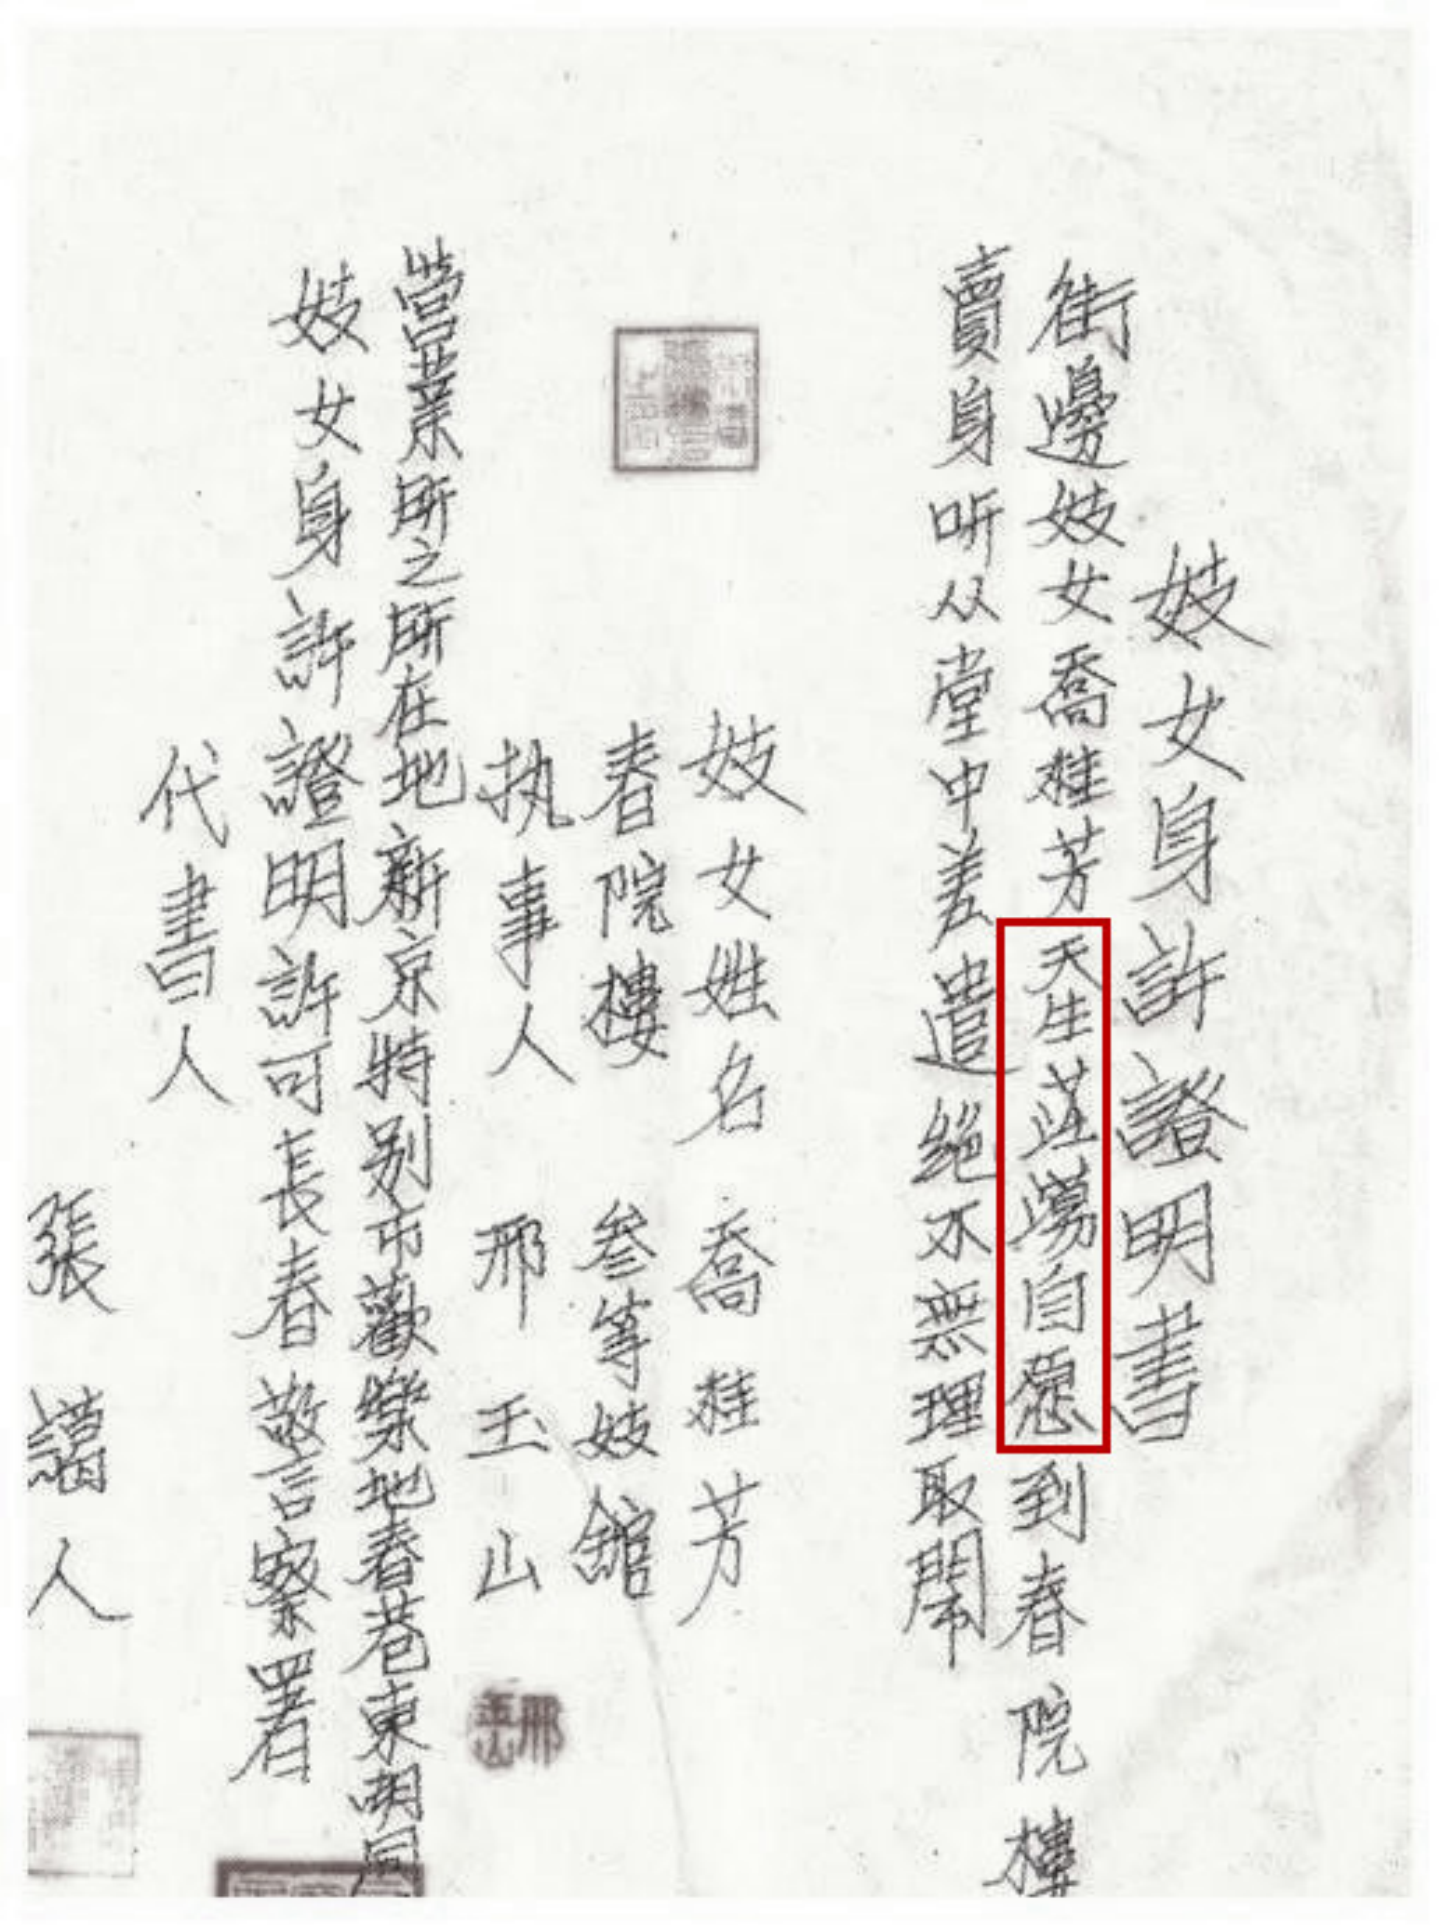 妓女身許證明書
街邊妓女喬桂芳天生淫蕩自愿到春院樓
賣身听从堂中差遣絕不無理取鬧
妓女姓名 喬桂芳
春院樓 叁等妓舘
执事人 邢玉山
邢玉山
營業所之所在地新京特别市歡樂地春巷東胡同
妓女身許證明許可長春警察署
代書人 張 人